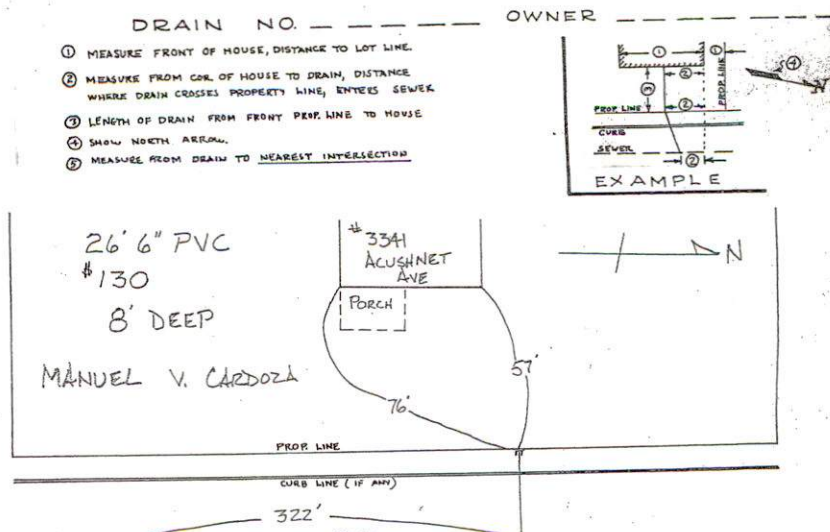 DRAIN NO. OWNER
① MEASURE FRONT OF HOUSE, DISTANCE TO LOT LINE.
② MEASURE FROM COR. OF HOUSE TO DRAIN, DISTANCE
WHERE DRAIN CROSSES PROPERTY LINE, ENTERS SEWER
③ LENGTH OF DRAIN FROM FRONT PROP. LINE TO HOUSE
④ SHOW NORTH ARROW.
⑤ MEASURE FROM DRAIN TO NEAREST INTERSECTION
① ①
③ ② PROP. LINE ④ N
PROP. LINE ②
CURB
SEWER
②
EXAMPLE
26' 6" PVC
$130
8' DEEP
MANUEL V. CARDOZA
# 3341
ACUSHNET
AVE
PORCH
N
57'
76'
PROP. LINE
CURB LINE (IF ANY)
322'